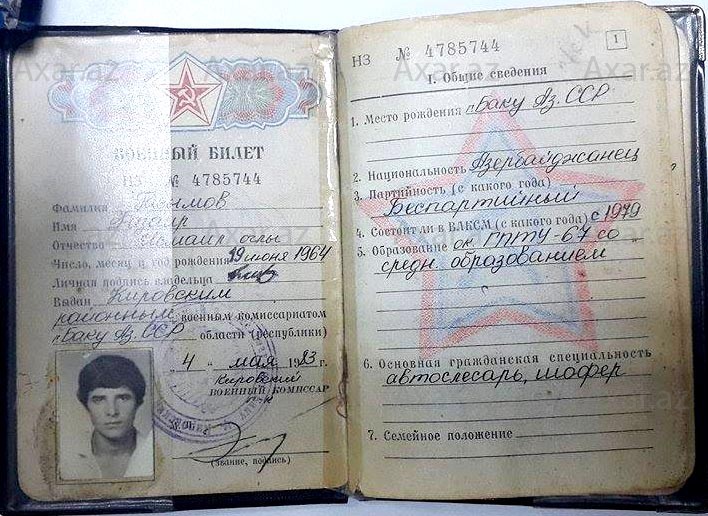 Axar.az
Axar.az
Axar.az
Axar.az
ВОЕННЫЙ БИЛЕТ
НЗ № 4785744
Фамилия
Имя
Отчество Исмаил оглы
Число, месяц и год рождения 19 июня 1964
Личная подпись владельца
Выдан Кировским
районным военным комиссариатом
г. Баку Аз. ССР области (республики)
4 " мая 1983 г.
Кировский
ВОЕННЫЙ КОМИССАР
п-к
(звание, подпись)
НЗ № 4785744
1
I. Общие сведения
1. Место рождения г. Баку Аз. ССР
2. Национальность Азербайджанец
3. Партийность (с какого года)
Беспартийный
4. Состоит ли в ВЛКСМ (с какого года) с 1979
5. Образование ок. ГПТУ-67 со
средн. образованием
6. Основная гражданская специальность
автослесарь, шофер
7. Семейное положение